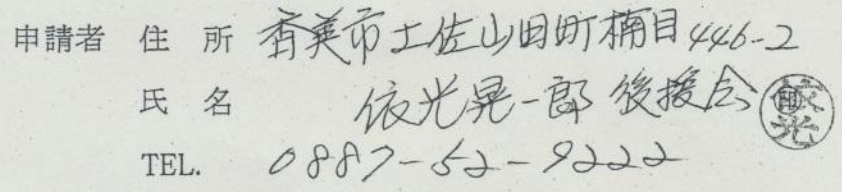 申請者 住所 香美市土佐山田町楠目446-2
氏名 依光晃一郎 後援会 印 依光
TEL. 0887-52-9222